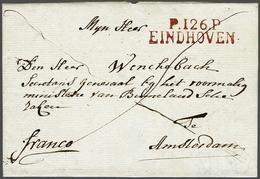 P.126.P.
EINDHOVEN
Myn Heer
Den Heer Wenckebach
Secretaris Generaal by het voormalig
ministerie van Binnelandsche
Zaken
te
franco Amsterdam